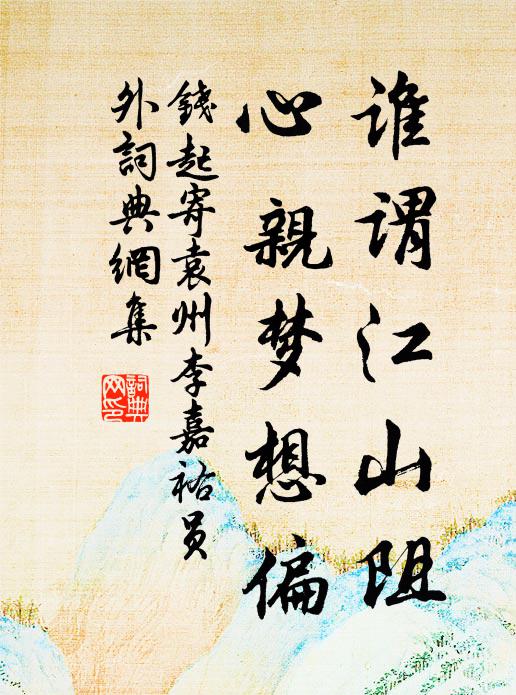 谁谓江山阻
心親梦想偏
錢起寄袁州李嘉祐员
外詞典網集
詞典
网印